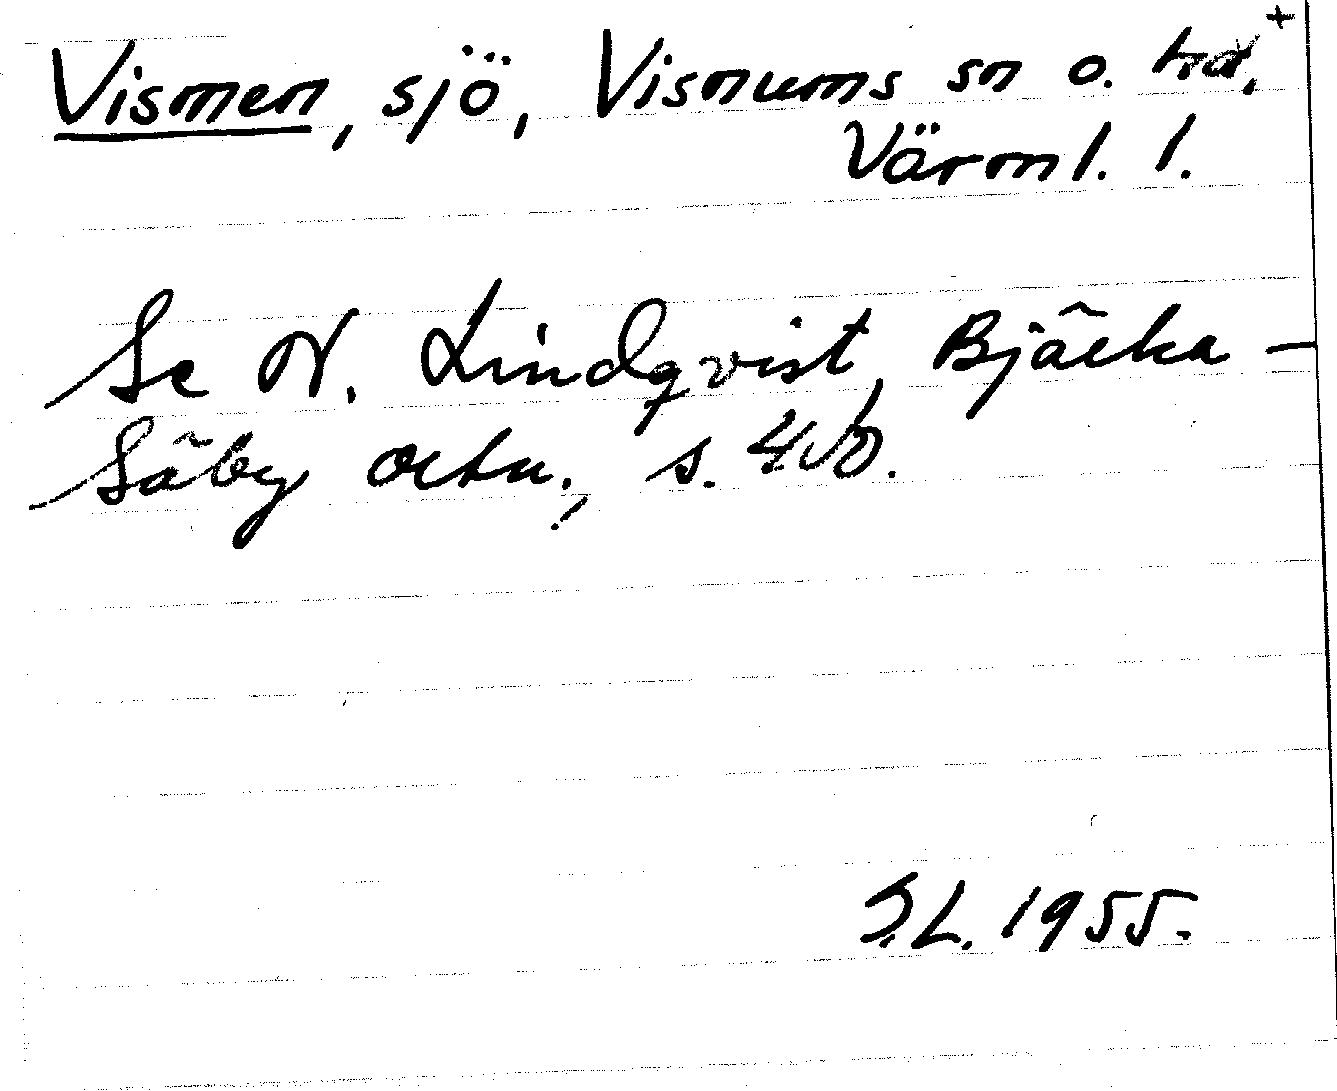 Vismen, sjö, Visnums sn o. hd, +
Värml. l.
Se N. Lindqvist, Bjärka-
Säby ortn., s.
S.L. 1955.